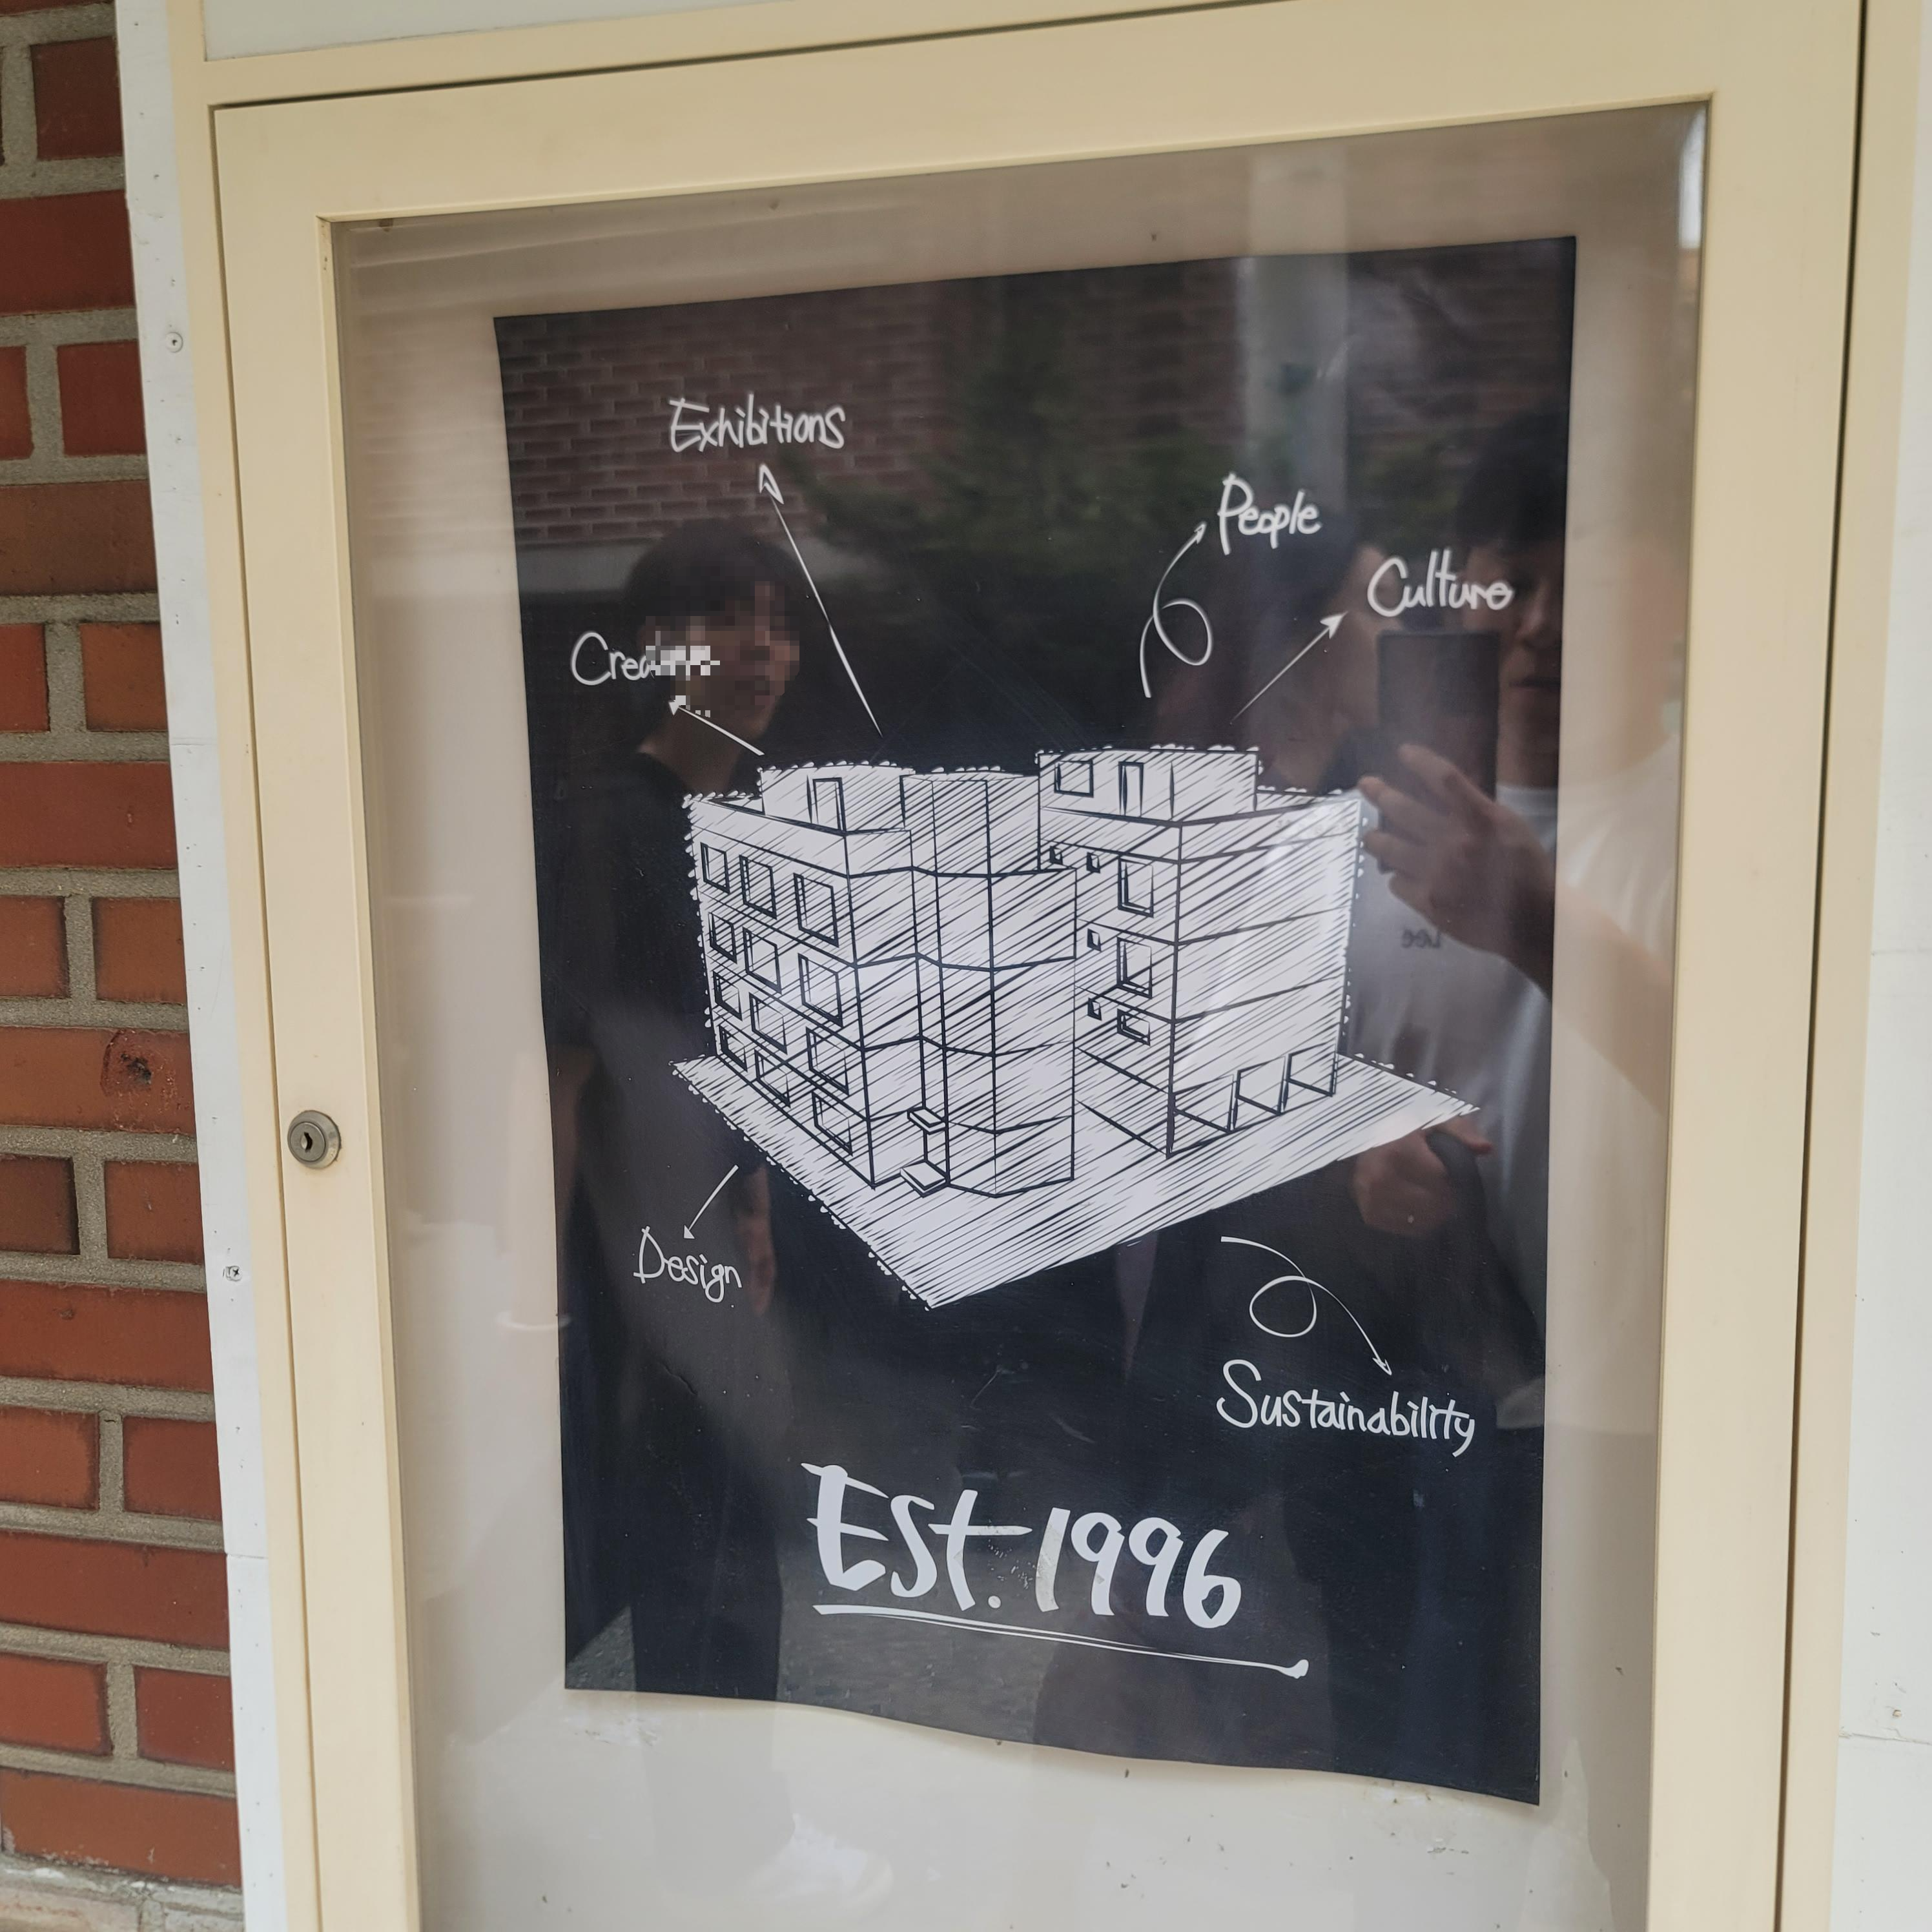 Exhibitions
People
Culture
Design
Sustainability
Est. 1996